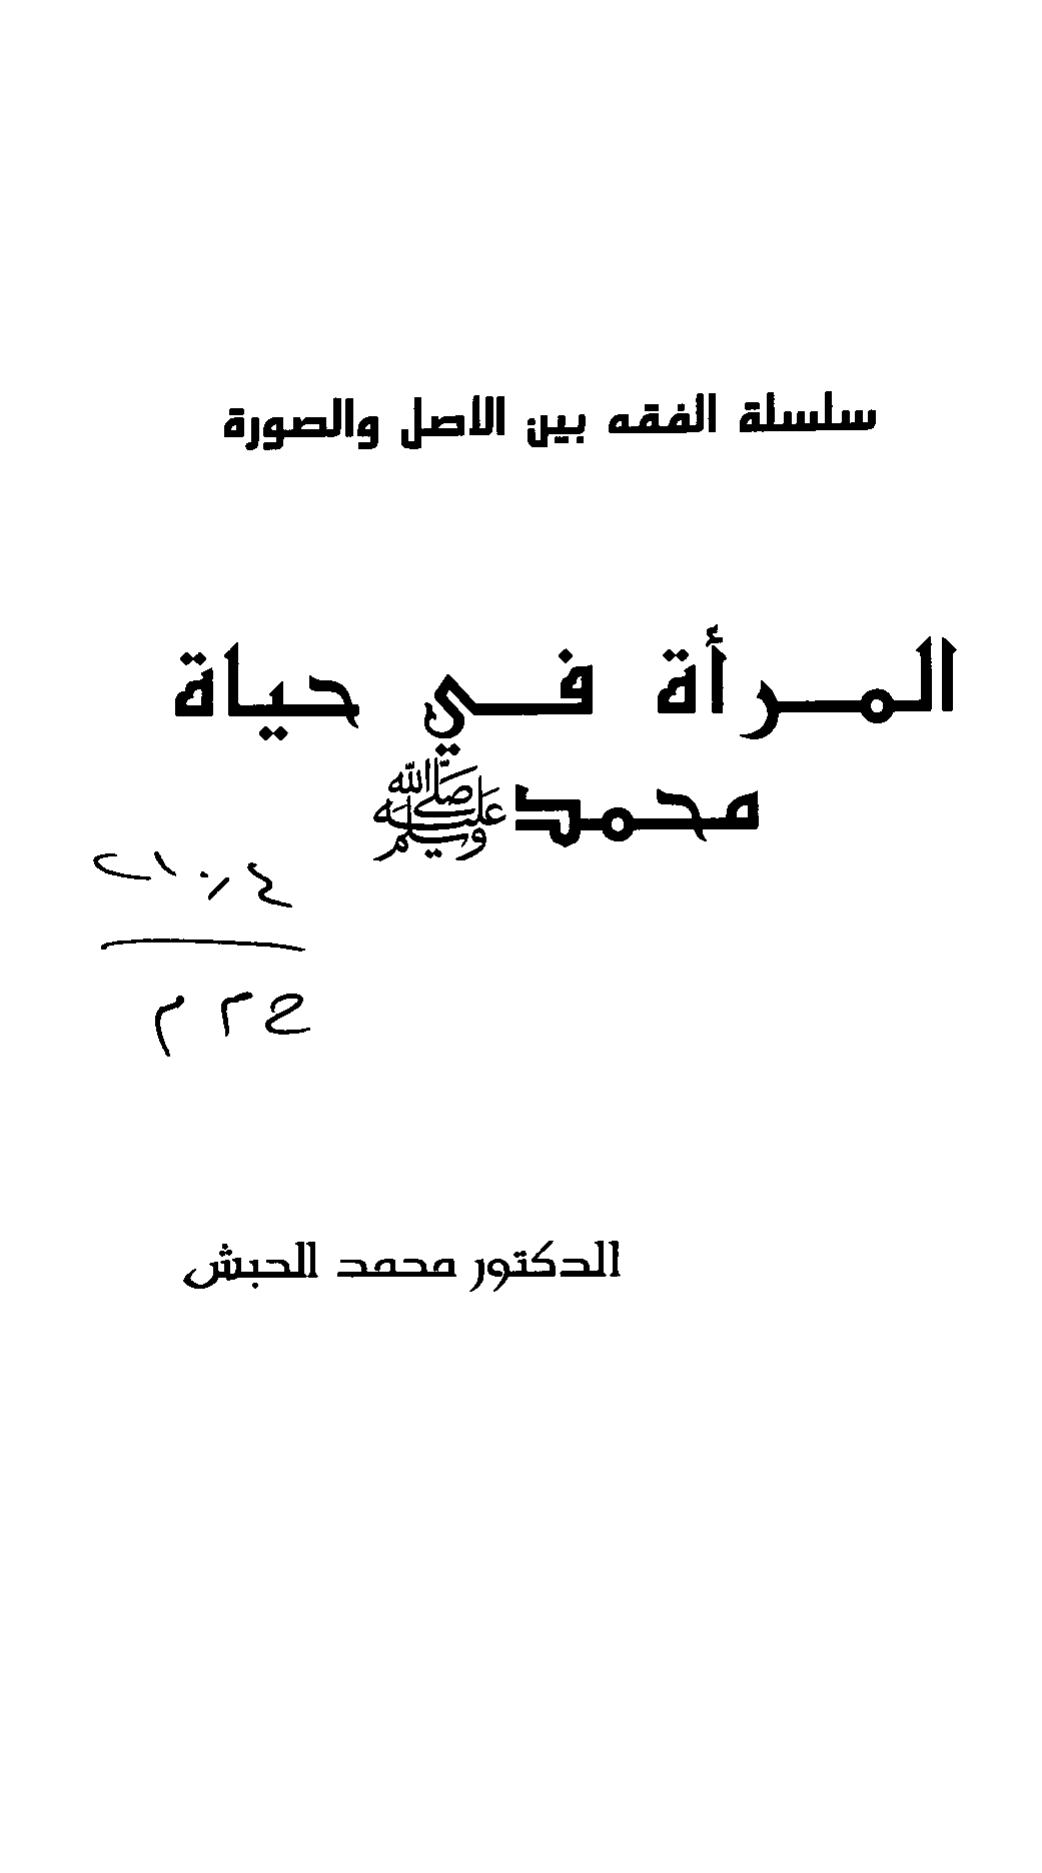 سلسلة الفقه بين الأصل والصورة
المرأة في حياة
محمد ﷺ
الدكتور محمد الحبش